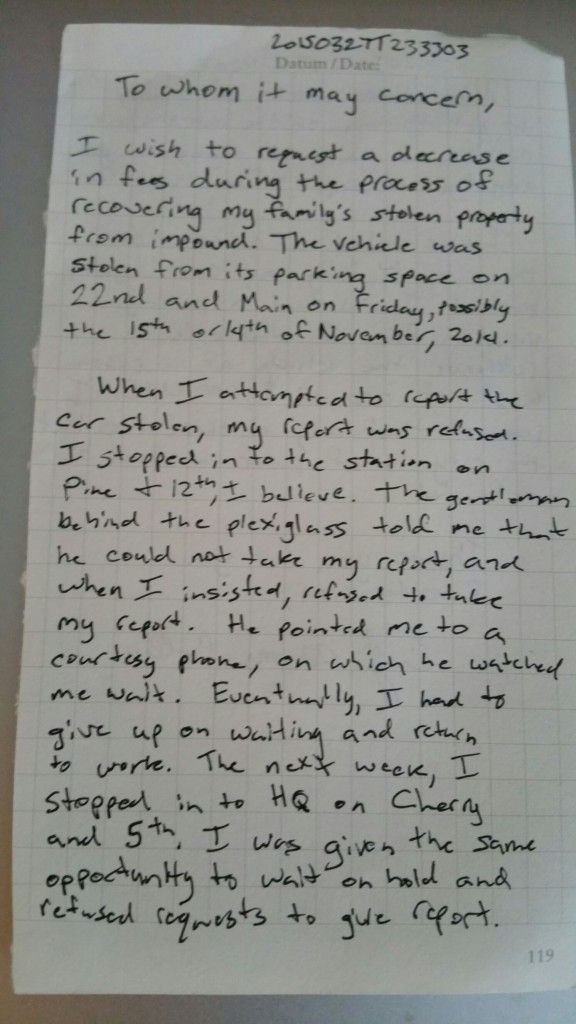 20150327T233303
Datum / Date:
To whom it may concern,
I wish to request a decrease
in fees during the process of
recovering my family's stolen property
from impound. The vehicle was
stolen from its parking space on
22nd and Main on Friday, possibly
the 15th or 14th of November, 2014.
When I attempted to report the
car stolen, my report was refused.
I stopped in to the station on
Pine + 12th, I believe. The gentleman
behind the plexiglass told me that
he could not take my report, and
when I insisted, refused to take
my report. He pointed me to a
courtesy phone, on which he watched
me wait. Eventually, I had to
give up on waiting and return
to work. The next week, I
stopped in to HQ on Cherry
and 5th. I was given the same
opportunity to wait on hold and
refused requests to give report.
119